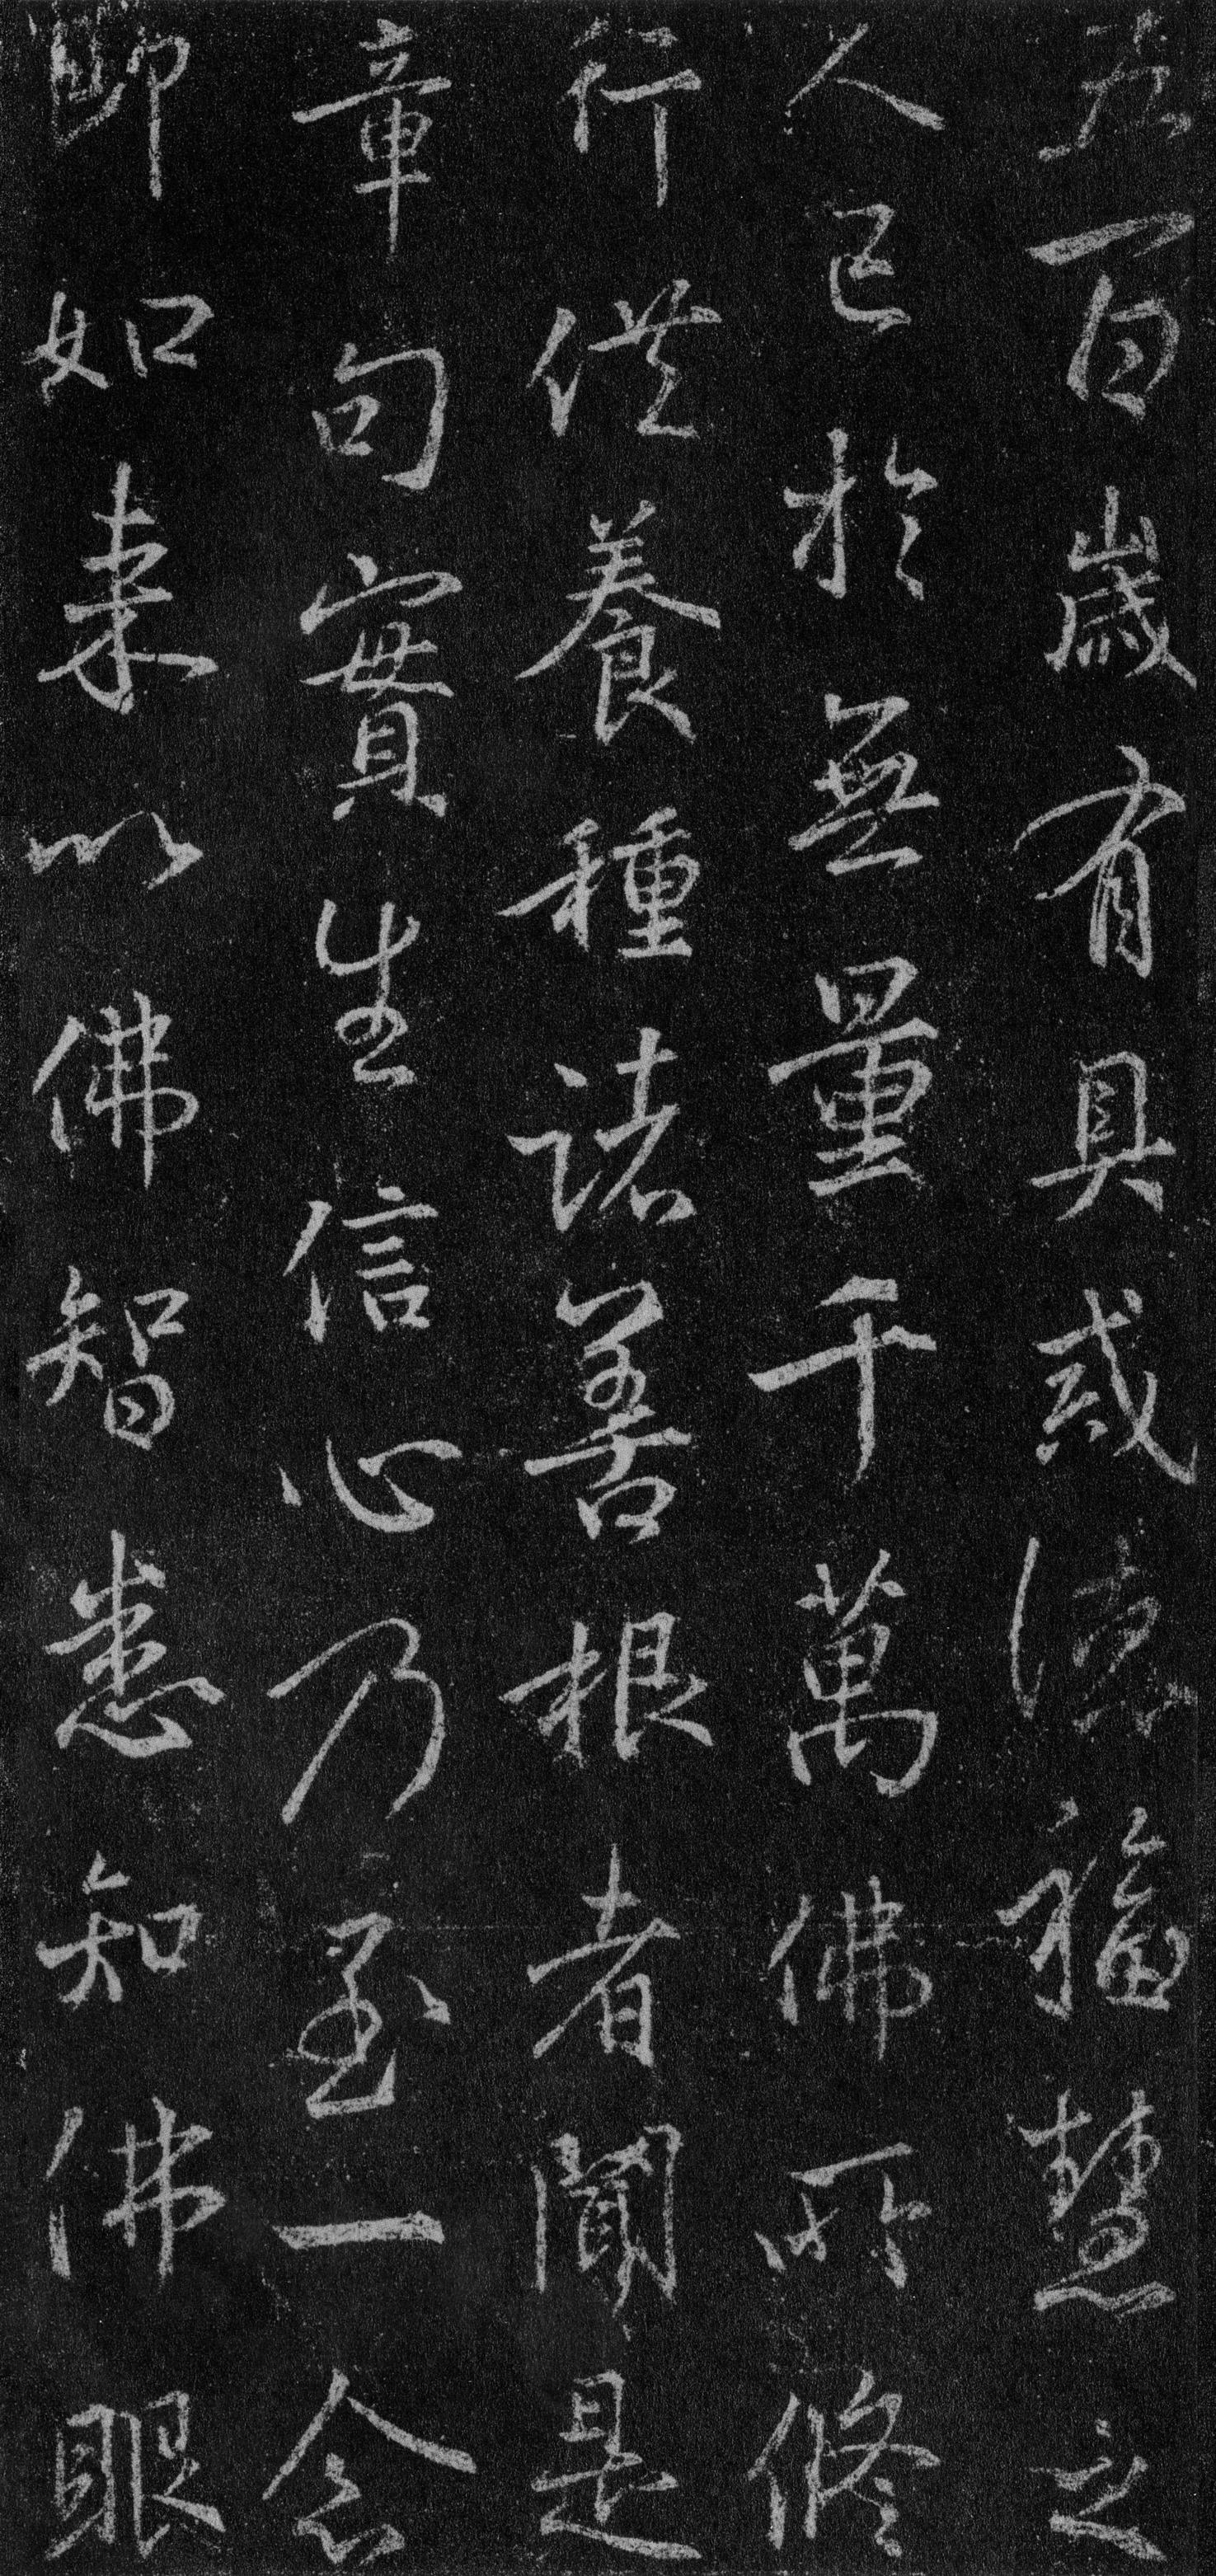 五百歲有具戒法福慧之
人已於無量千萬佛所修
行供養種諸善根者聞是
章句實生信心乃至一念
即如來以佛智悉知佛眼